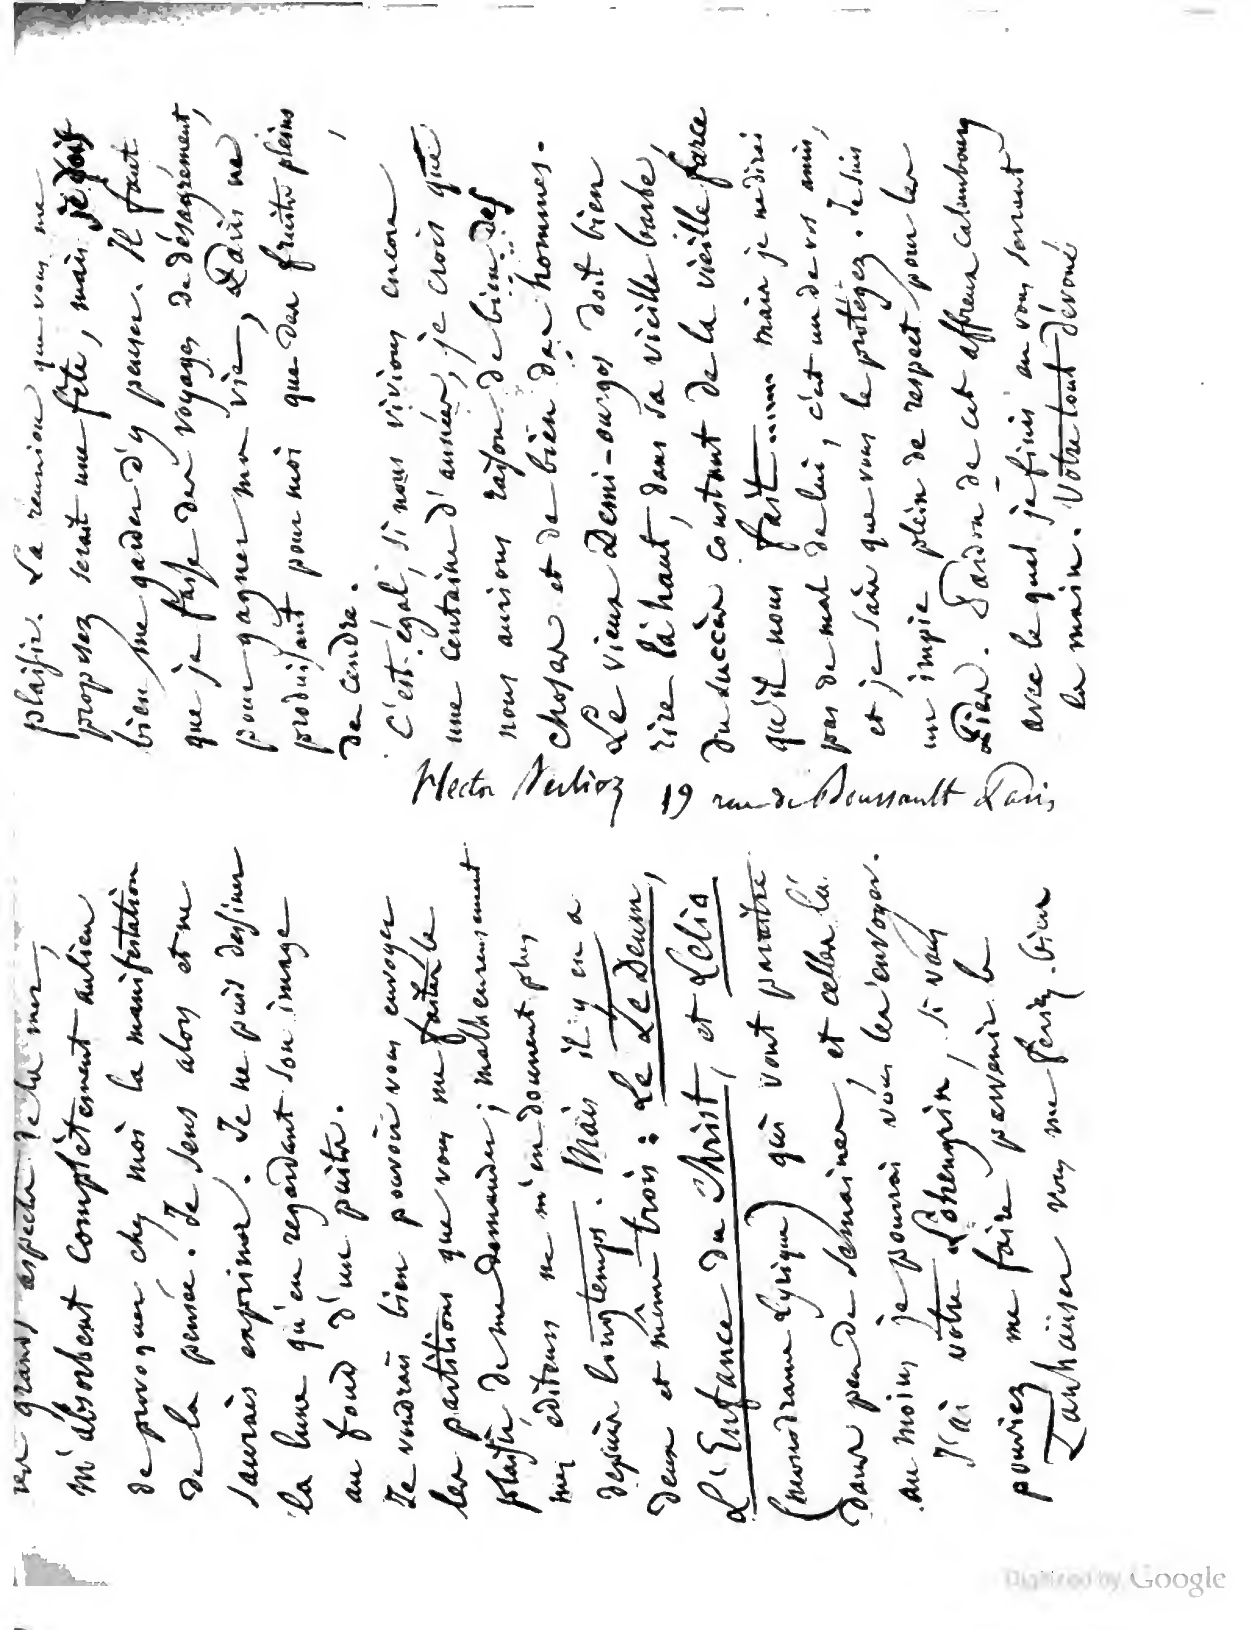 ses grands aspects de la mer,
m'absorbent complètement au lieu
de provoquer chez moi la manifestation
de la pensée. Je sens alors et ne
saurais exprimer. Je ne puis dessiner
la lune qu'en regardant son image
au fond d'un puits.
Je voudrais bien pouvoir vous envoyer
les partitions que vous me faites le
plaisir de me demander; malheureusement
mes editeurs ne m'en donnent plus
depuis longtemps. Mais il y en a
deux et même trois: Le Te Deum,
L'Enfance du Christ, et Lelio
(monodrame lyrique) qui vont paraître
dans peu de semaines, et celles là
au moins je pourrai vous les envoyer.
J'ai votre Lohengrin, si vous
pouviez me faire parvenir le
Tanhaüser vous me feriez bien
plaisir. La reunion que vous me
proposez serait une fête, mais je dois
bien me garder d'y penser. Il faut
que je fasse des voyages de désagrément,
pour gagner ma vie, Paris ne
produisant pour moi que des fruits pleins
de cendre.
C'est égal, si nous vivions encore
une centaine d'années, je crois que
nous aurions raison de bien des
choses et de bien des hommes.
Le vieux Demi-ourgos doit bien
rire là haut, dans sa vieille barbe,
du succès constant de la vieille farce
qu'il nous fait...... mais je ne dirai
pas de mal de lui, c'est un de vos amis,
et je sais que vous le protégez. Je suis
un impie plein de respect pour les
Pies. Pardon de cet affreux calembourg
avec lequel je finis en vous serrant
la main. Votre tout dévoué
Hector Berlioz 19 rue de Boursault Paris
Digitized by Google